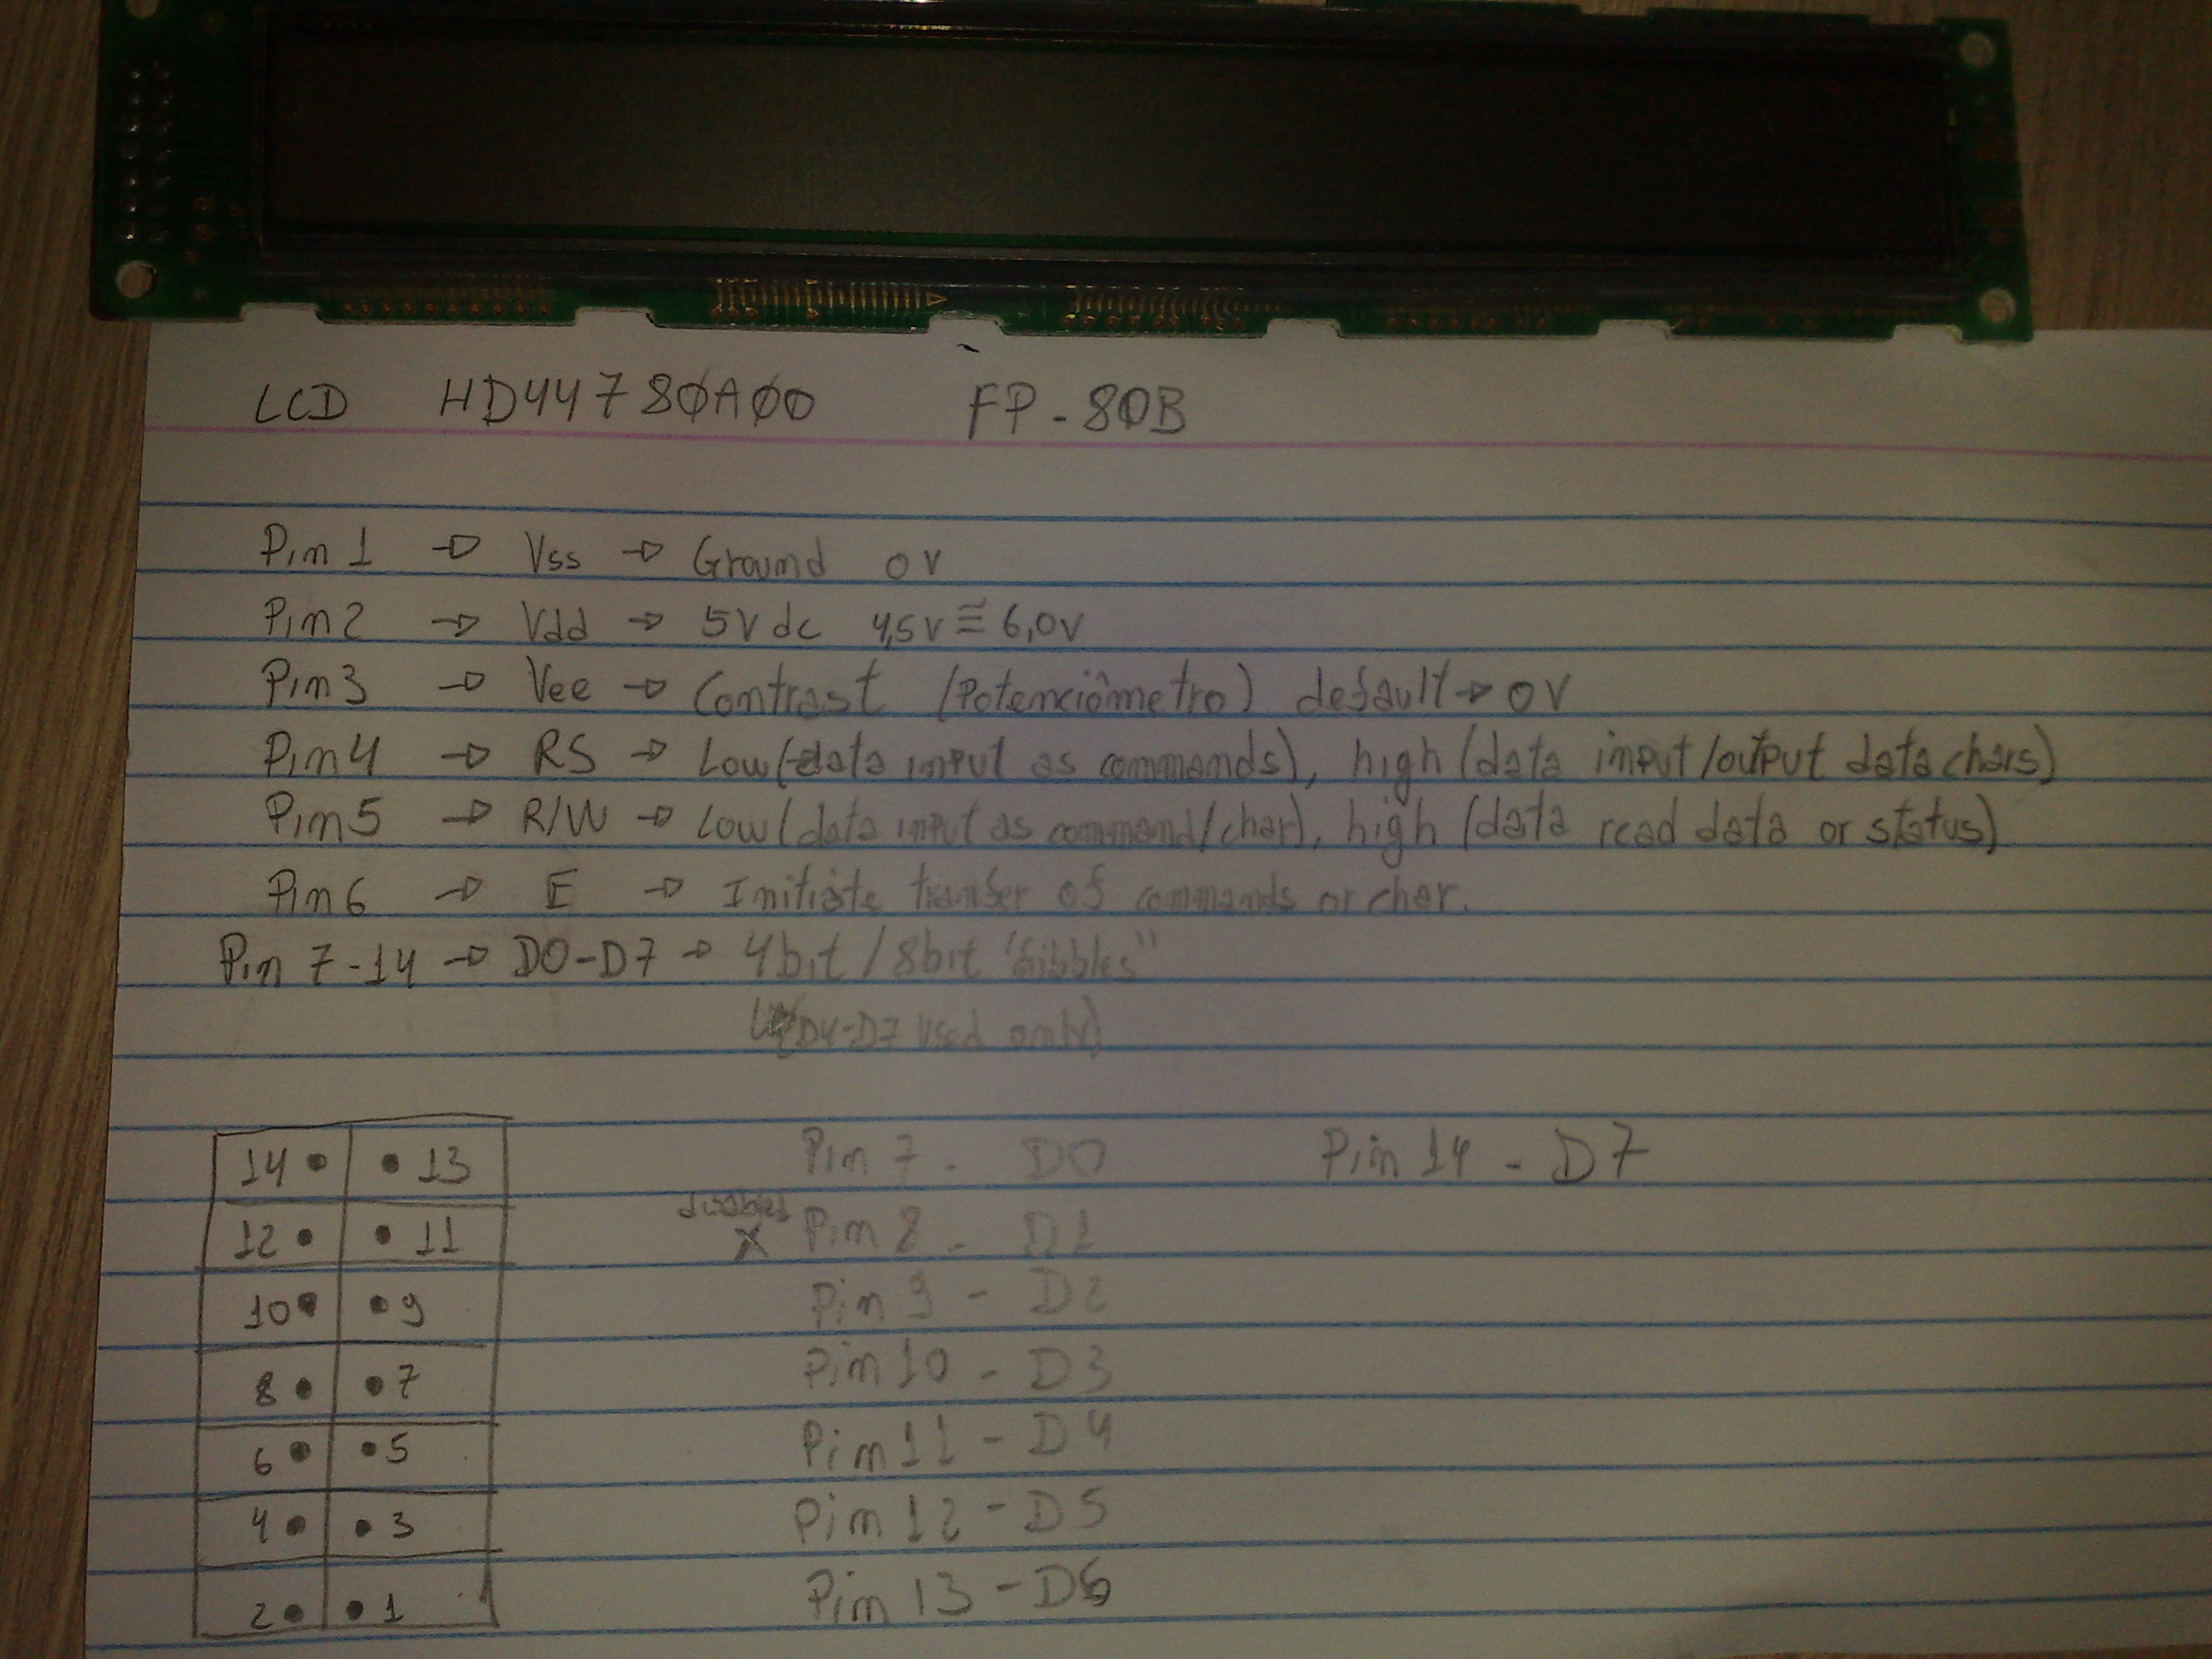 LCD HD44780A00 FP-80B
Pin1 → Vss → Ground 0V
Pin2 → Vdd → 5Vdc 4,5V ≅ 6,0V
Pin3 → Vee → Contrast (Potenciômetro) default → 0V
Pin4 → RS → Low (data input as commands), high (data input/output data chars)
Pin5 → R/W → Low (data input as command/char), high (data read data or status)
Pin6 → E → Initiate tranfer of commands or char.
Pin 7-14 → D0-D7 → 4bit / 8bit "nibbles"
(D4-D7 used only)
14 • • 13
12 • • 11
10 • • 9
8 • • 7
6 • • 5
4 • • 3
2 • • 1
Pin 7 - D0
disabled X Pin 8 - D1
Pin 9 - D2
Pin 10 - D3
Pin 11 - D4
Pin 12 - D5
Pin 13 - D6
Pin 14 - D7